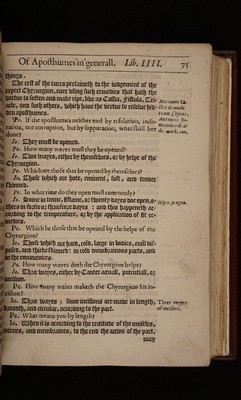 Of Aposthumes in generall. Lib. IIII. 75
things.
The rest of the cures pertaineth to the iudgement of the
expert Chyrurgion, euer vsing such remedies that hath the
vertue to soften and make ripe, like as Cassia, Fistula, Tri-
acle, and such others, which haue the vertue to resolue hid-
den aposthumes.
Pe. If the aposthumes neither end by resolution, indu-
ration, nor corruption, but by suppuration, what shall bee
done?
Io. They must be opened.
Pe. How many waies must they be opened?
Io. Two waies, either by themselues, or by helpe of the
Chyrurgion.
Pe. Which are those that be opened by themselues?
Io. Those which are hote, eminent, soft, and tender
skinned.
Pe. In what time do they open most commonly?
Io. Some in tenne, some, or twenty dayes doe open, or
there is fortie or threescore dayes: and this happeneth ac-
cording to the temperature, or by the application of fit re-
medies.
Pe. Which be those that be opened by the helpe of the
Chyrurgion?
Io. Those which are hard, cold, large in bodies, euill dis-
posed, and thicke skinned: in cold membranous parts, and
in the emunctories.
Pe. How many wayes doth the Chyrurgion helpe?
Io. Three waies, either by Canter actuall, potentiall, or
incision.
Pe. How many waies maketh the Chyrurgion his in-
cision?
Io. Three wayes; some incisions are made in length,
breadth, and circular, according to the part.
Pe. What meane you by length?
Io. When it is according to the rectitude of the muscles,
nerues, and membraines, to the end the action of the part,
may
Hipp. progno.
Three wayes
of incision.